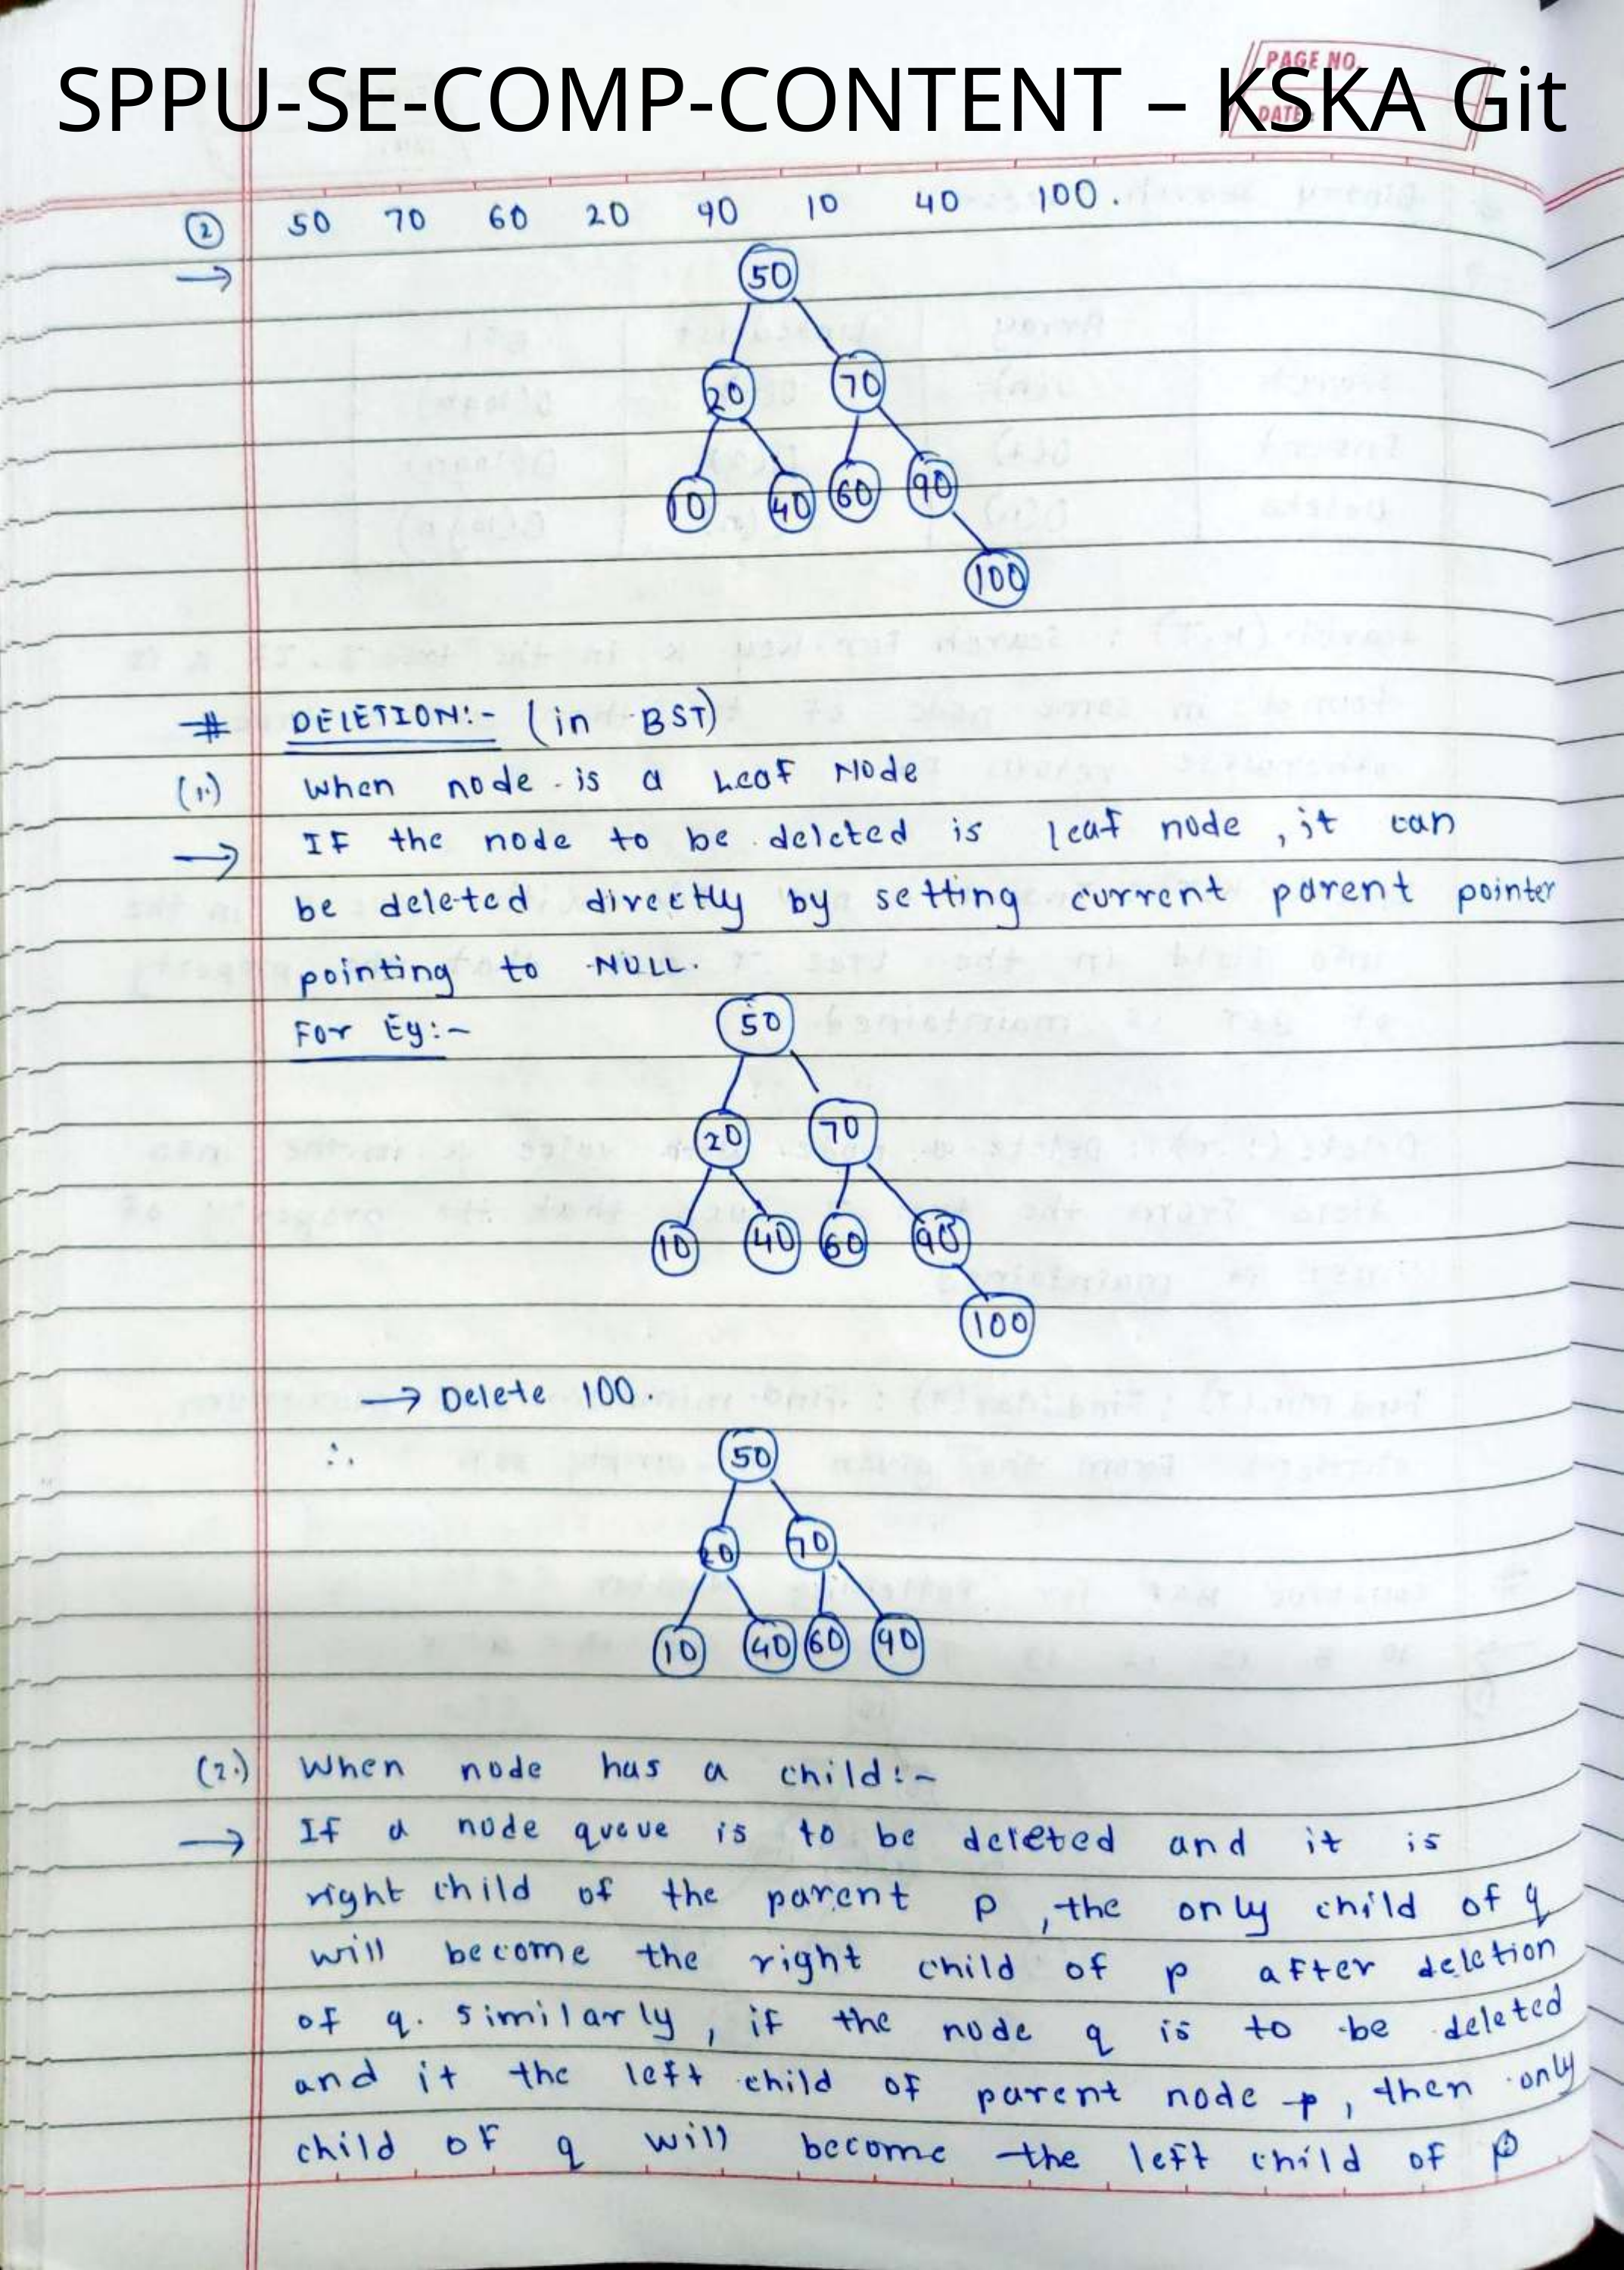 SPPU-SE-COMP-CONTENT – KSKA Git
PAGE NO.
DATE:
② 50 70 60 20 90 10 40 100.
→
50
20 70
10 40 60 90
100
# DELETION:- (in BST)
(1.) When node is a Leaf Node
→ IF the node to be deleted is leaf node, it can
be deleted directly by setting current parent pointer
pointing to NULL.
For Eg:-
50
20 70
10 40 60 90
100
→ Delete 100.
∴
50
20 70
10 40 60 90
(2.) When node has a child:-
→ If a node queue is to be deleted and it is
right child of the parent p, the only child of q
will become the right child of p after deletion
of q. similarly, if the node q is to be deleted
and it the left child of parent node p, then only
child of q will become the left child of p